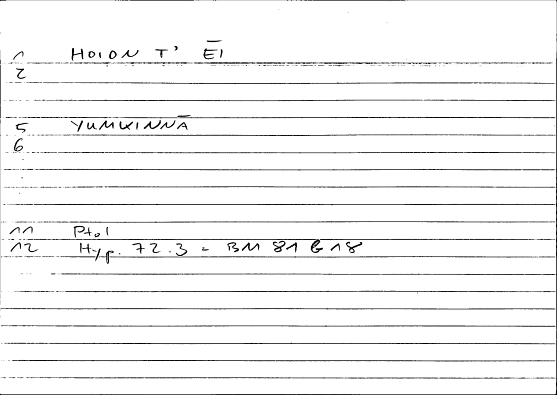 1 HOION T' ĒI
2
5 YUMKINNĀ
6
11 Ptol
12 Hyp. 72.3 = BM 81 b 18